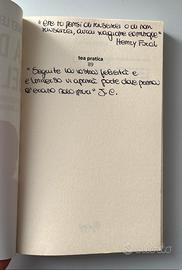 "Che tu pensi di riuscirci o di non
riuscirci, avrai ragione comunque"
Henry Ford
tea pratica
89
"Seguite la vostra felicità e
l'universo vi aprirà porte dove prima
c'erano solo muri" J. C.
subito